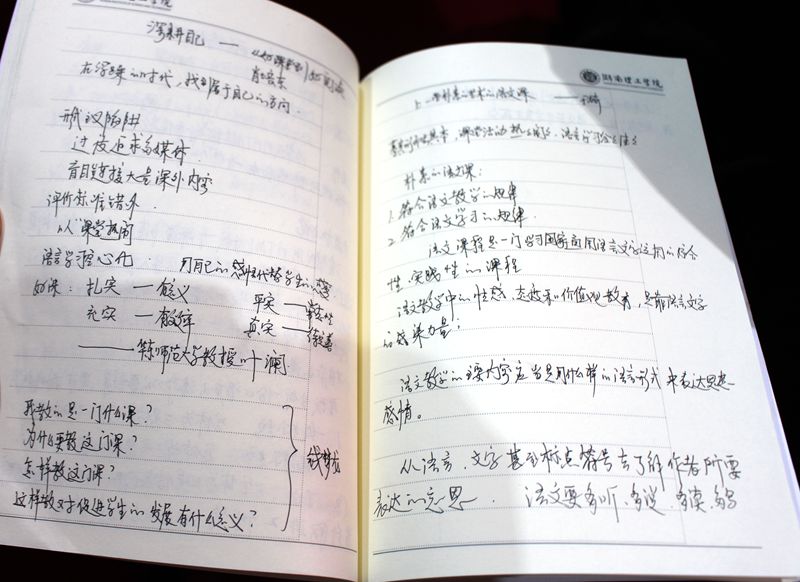 深耕自己 ——
肖培东
在浮躁的时代，找到属于自己的方向.
形式的陷阱
过度追求多媒体.
盲目链接大量课外内容
评价标准错外.
以"课堂热闹
语言学习空心化. 用自己的感性代替学生的感受
好课：扎实 — 有意义 平实 —— 常态性
充实 — 有效率 真实 —— 待完善
—— 华东师范大学教授叶澜
我教的是一门什么课？
为什么要教这门课？
怎样教这门课？
这样教对于促进学生的发展有什么意义？
钱梦龙
湖南理工学院
上一堂朴素的学术的语文课 ——王崎
朴素的语文课：
1. 符合语文教学的规律
2. 符合语文学习的规律.
语文课程是一门学习国家通用语言文字运用的综合
性、实践性的课程
语文教学中的情感、态度和价值观教育，是靠语言文字
的感染力量；
语文教学的课内容应当是用什么样的语言形式来表达思想
感情。
从语言、文字甚至标点符号去了解作者所要
表达的意思. 语文要多听、多说、多读、多写